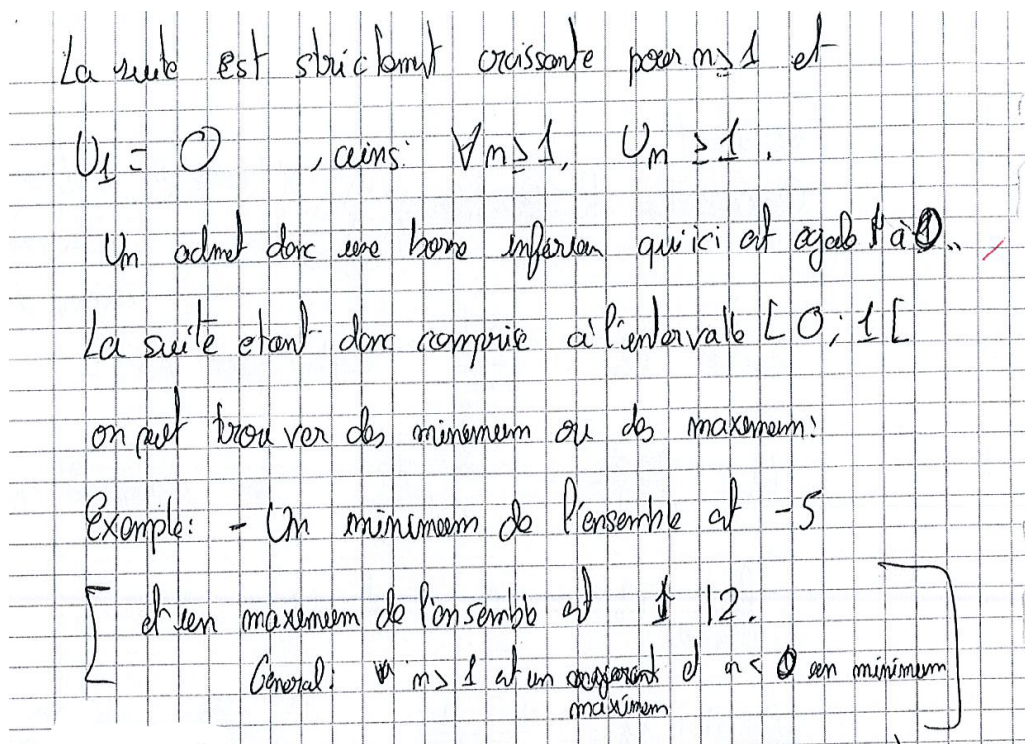 La suite est strictement croissante pour n ≥ 1 et
U1 = 0 , ainsi ∀n ≥ 1, Un ≥ 1.
Un admet donc une borne inferieur qui ici est egale à 0.
La suite etant donc comprise à l'intervalle [0; 1[
on peut trouver des minimum ou des maximum:
Exemple: - Un minimum de l'ensemble est -5
et un maximum de l'ensemble est 12.
General: n > 1 est un et n < 0 un minimum
maximum